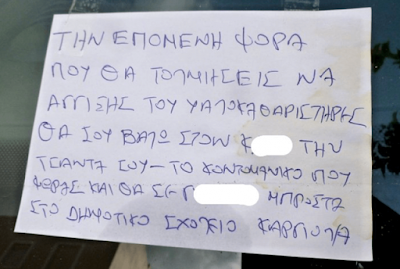 ΤΗΝ ΕΠΟΜΕΝΗ ΦΟΡΑ
ΠΟΥ ΘΑ ΤΟΛΜΗΣΕΙΣ ΝΑ
ΑΓΓΙΣΗΣ ΤΟΥ ΥΑΛΟΚΑΘΑΡΙΣΤΗΡΕΣ
ΘΑ ΣΟΥ ΒΑΛΩ ΣΤΟΝ Κ ΤΗΝ
ΤΣΑΝΤΑ ΣΟΥ – ΤΟ ΚΟΝΤΟΜΑΝΙΚΟ ΠΟΥ
ΦΟΡΑΣ ΚΑΙ ΘΑ ΣΕ Γ ΜΠΡΟΣΤΑ
ΣΤΟ ΔΗΜΟΤΙΚΟ ΣΧΟΛΕΙΟ